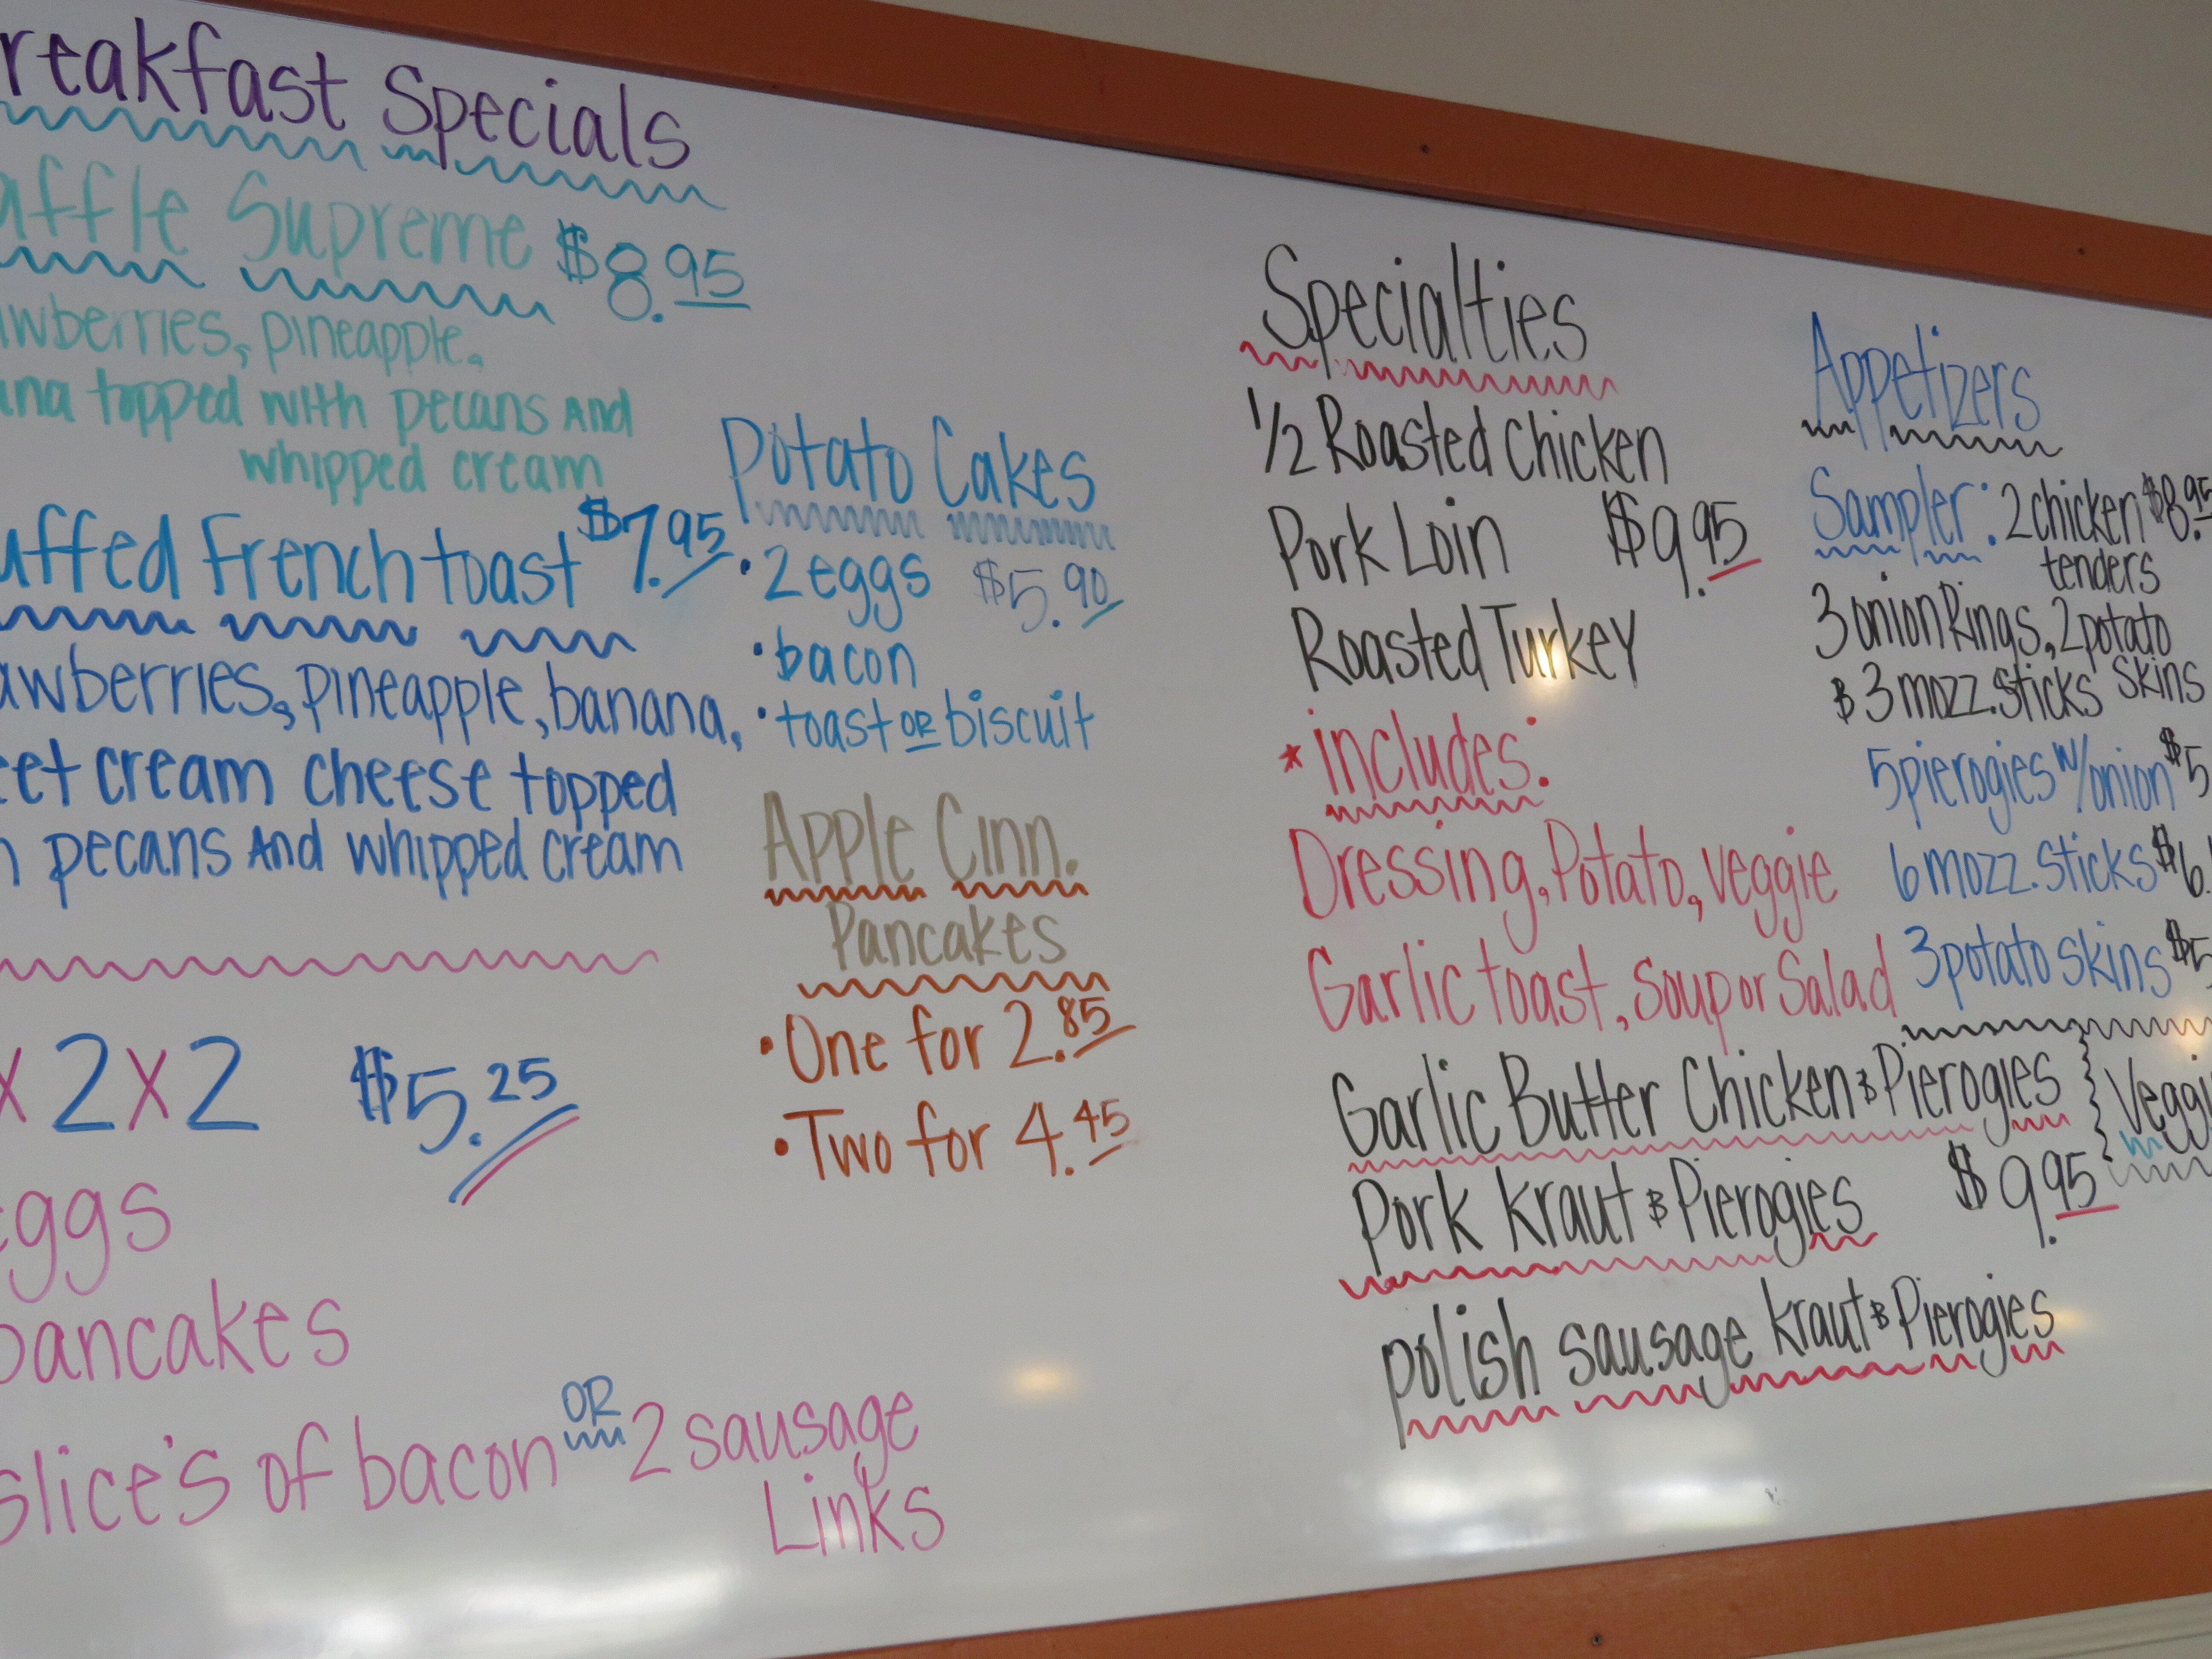 reakfast Specials
affle Supreme $8.95
awberries, pineapple,
ana topped with pecans And
whipped cream
uffed French toast $7.95
awberries, pineapple, banana,
eet cream cheese topped
h pecans And whipped cream
x 2 x 2 $5.25
eggs
pancakes
slice's of bacon OR 2 sausage
Links
Potato Cakes
• 2 eggs $5.90
• bacon
• toast OR biscuit
Apple Cinn.
Pancakes
• One for 2.85
• Two for 4.45
Specialties
1/2 Roasted Chicken
Pork Loin $9.95
Roasted Turkey
* includes:
Dressing, Potato, veggie
Garlic toast, soup or Salad
Garlic Butter Chicken & Pierogies } Veggi
Pork Kraut & Pierogies $9.95
polish sausage kraut & Pierogies
Appetizers
Sampler: 2 chicken $8.95
tenders
3 onion Rings, 2 potato
& 3 mozz. sticks skins
5 pierogies w/ onion $5
6 mozz. sticks $6.
3 potato skins $5